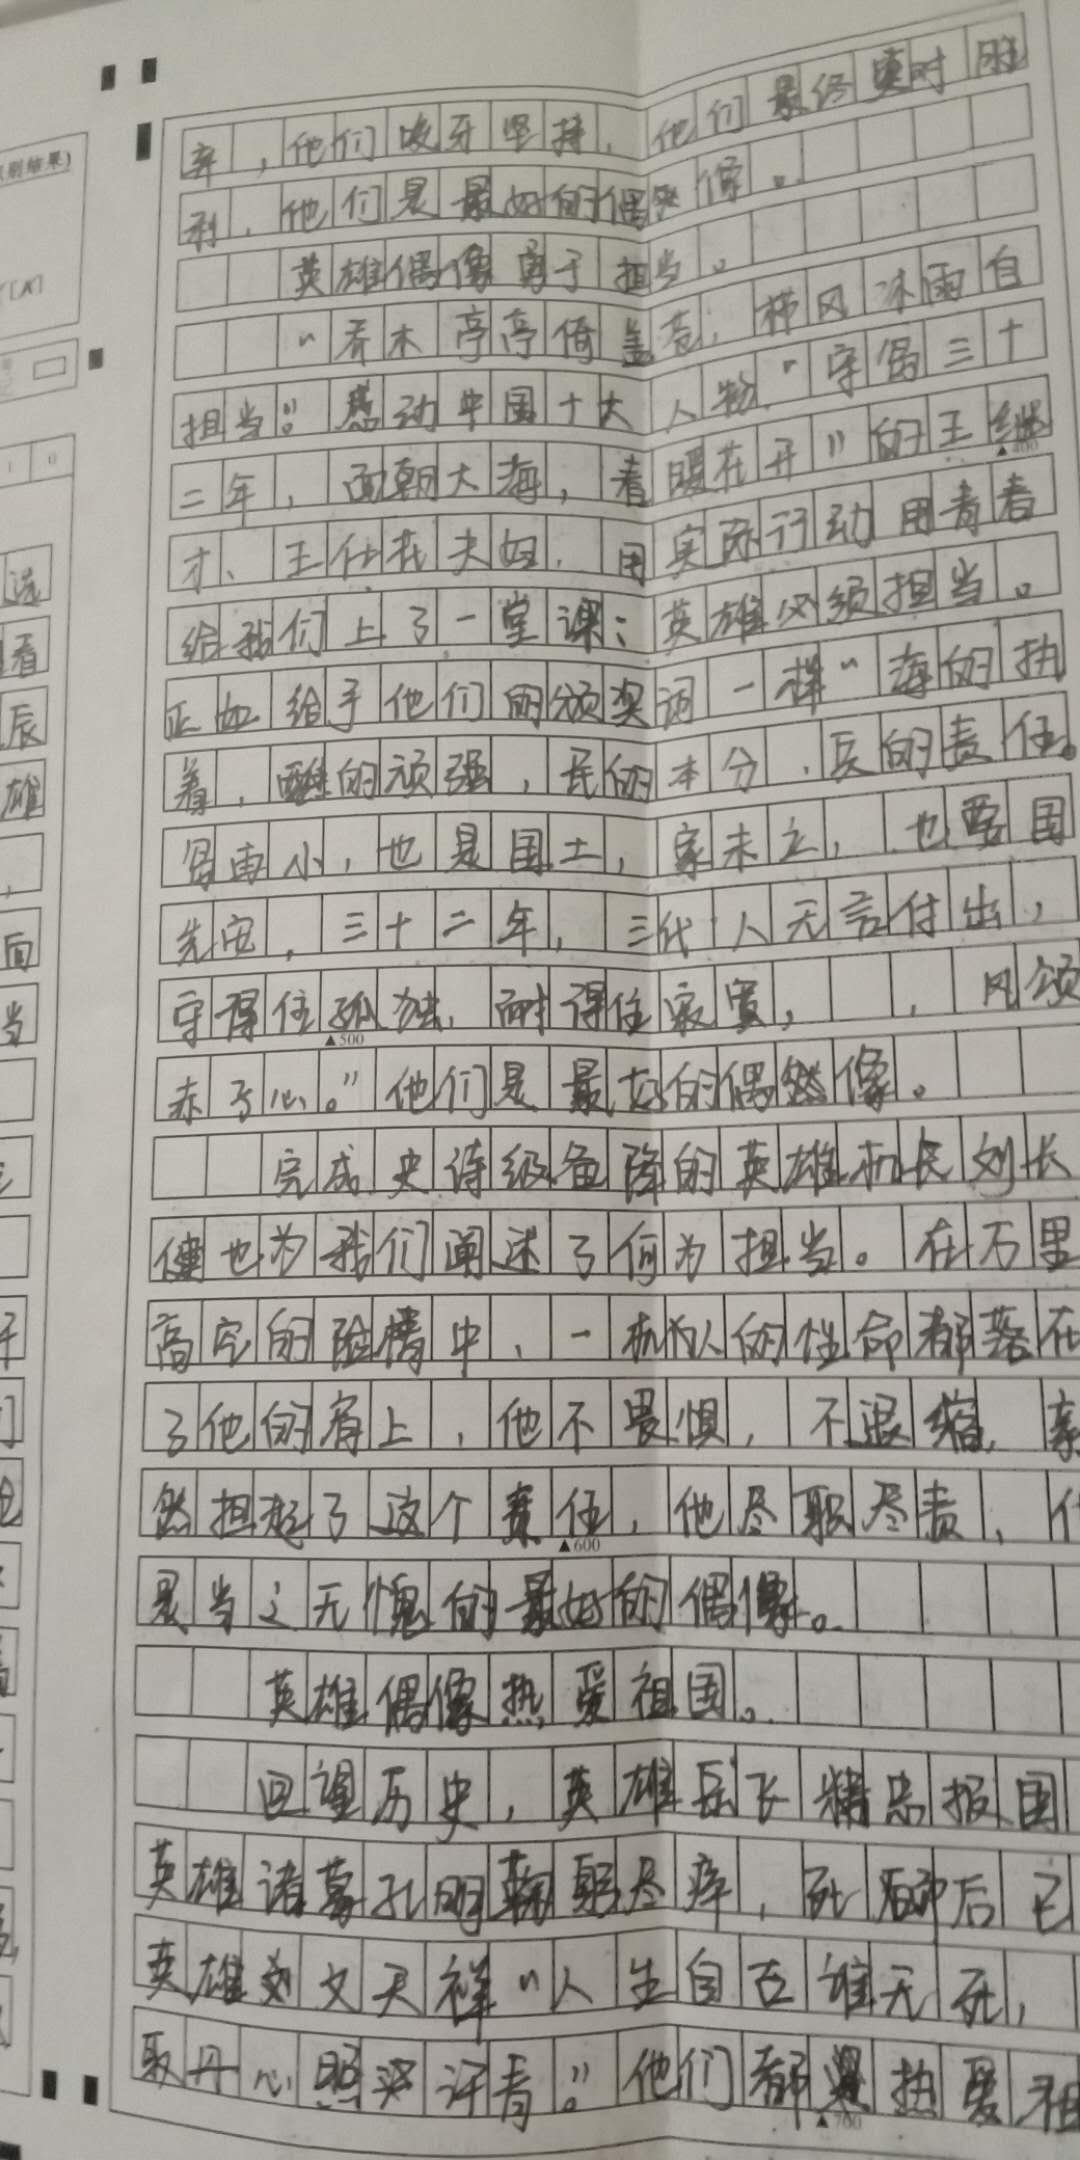 弃，他们咬牙坚持，他们最终迎时胜
利，他们是最好的偶像。
英雄偶像勇于担当。
“乔木亭亭倚盖苍，栉风沐雨自
担当。”感动中国十大人物“守岛三十
二年，面朝大海，春暖花开”的王继
才、王仕花夫妇，用实际行动用青春
给我们上了一堂课：英雄必须担当。
正如给予他们的颁奖词一样“海的执
着，礁的顽强，民的本分，兵的责任。
岛再小，也是国土，家未立，也要国
先安，三十二年，三代人无言付出，
守得住孤独，耐得住寂寞，，风颂
赤子心。”他们是最好的偶然像。
完成史诗级备降的英雄机长刘长
健也为我们阐述了何为担当。在万里
高空的险情中，一机人的性命都落在
了他的肩上，他不畏惧，不退缩，毅
然担起了这个责任，他尽职尽责，他
是当之无愧的最好的偶像。
英雄偶像热爱祖国。
回望历史，英雄岳飞精忠报国
英雄诸葛孔明鞠躬尽瘁，死而后已
英雄文天祥“人生自古谁无死，
取丹心照汗青。”他们都是热爱祖
▲400
▲500
▲600
▲700
别结果)